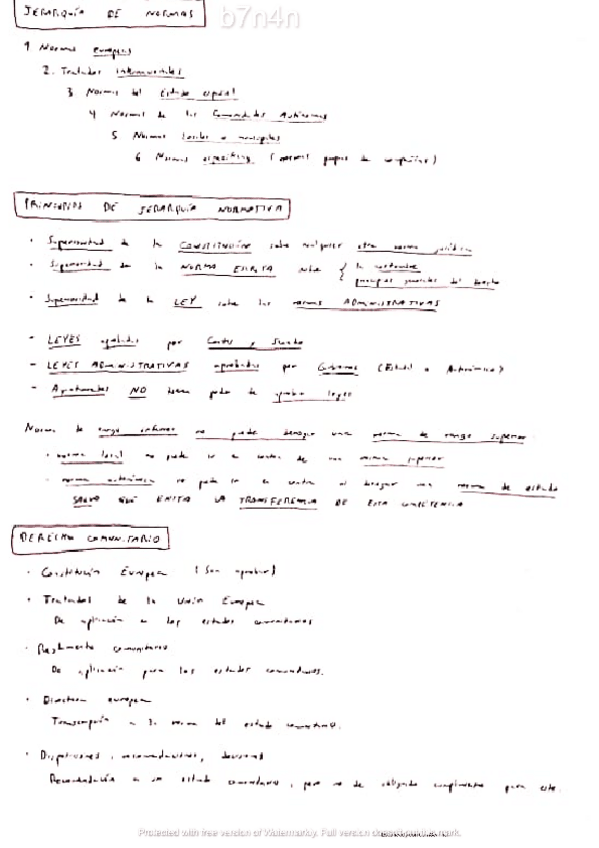 JERARQUÍA DE NORMAS
b7n4n
1 Normas europeas
2. Tratados internacionales
3 Normas del Estado español
4 Normas de las Comunidades Autónomas
5 Normas locales o municipales
6 Normas específicas (normas propias de compañías)
PRINCIPIOS DE JERARQUÍA NORMATIVA
· Superioridad de la CONSTITUCIÓN sobre cualquier otra norma jurídica
· Superioridad de la NORMA ESCRITA sobre { la costumbre
principios generales del derecho
· Superioridad de la LEY sobre las normas ADMINISTRATIVAS
- LEYES aprobadas por Cortes y Senado
- LEYES ADMINISTRATIVAS aprobadas por Gobierno (Estatal o Autonómico)
- Ayuntamientos NO tienen poder de aprobar leyes
Norma de rango inferior no puede derogar una norma de rango superior
· norma local no puede ir en contra de una norma superior
· norma autonómica no puede ir en contra ni derogar una norma de estado
SALVO QUE EXISTA LA TRANSFERENCIA DE ESTA COMPETENCIA
DERECHO COMUNITARIO
· Constitución Europea (sin aprobar)
· Tratados de la Unión Europea
De aplicación a los estados comunitarios
· Reglamento comunitario
De aplicación para los estados comunitarios.
· Directiva europea
a la norma del estado
· Disposiciones, recomendaciones,
Recomendación a un estado comunitario, pero no de obligado cumplimiento para este.
Protected with free version of Watermarkly. Full version doesn't put this mark.